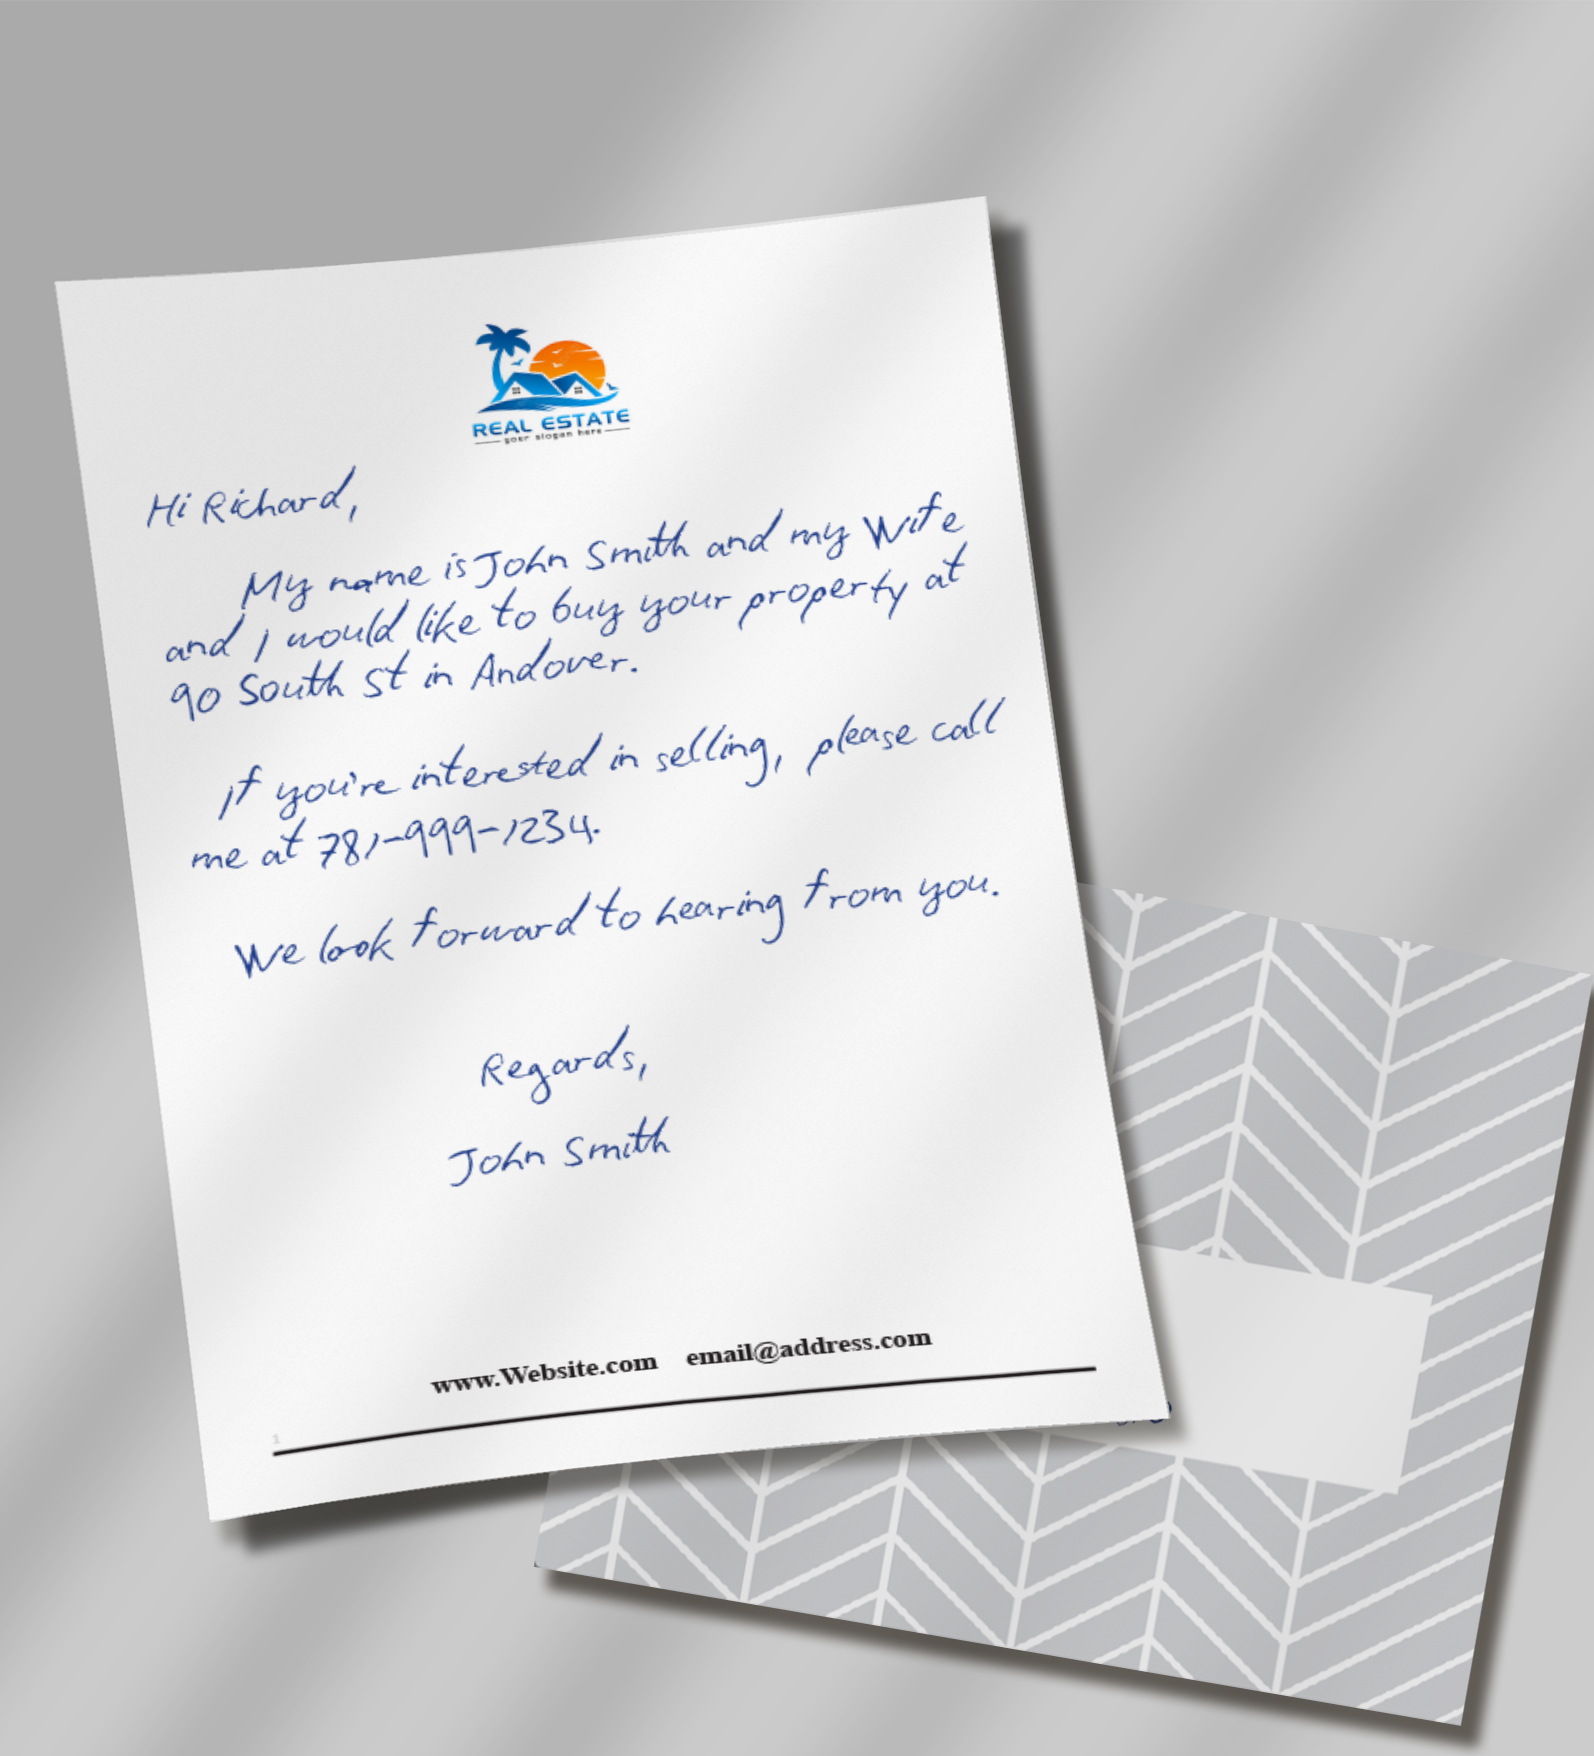 REAL ESTATE
your slogan here
Hi Richard,
My name is John Smith and my Wife
and I would like to buy your property at
90 South St in Andover.
If you're interested in selling, please call
me at 781-999-1234.
We look forward to hearing from you.
Regards,
John Smith
www.Website.com email@address.com
1